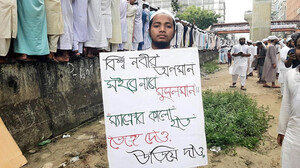 বিশ্ব নবীর অপমান
সইবে নারে
মুসলমান"
কালো হাত
ভেঙ্গে দেও
উড়িয়ে দাও